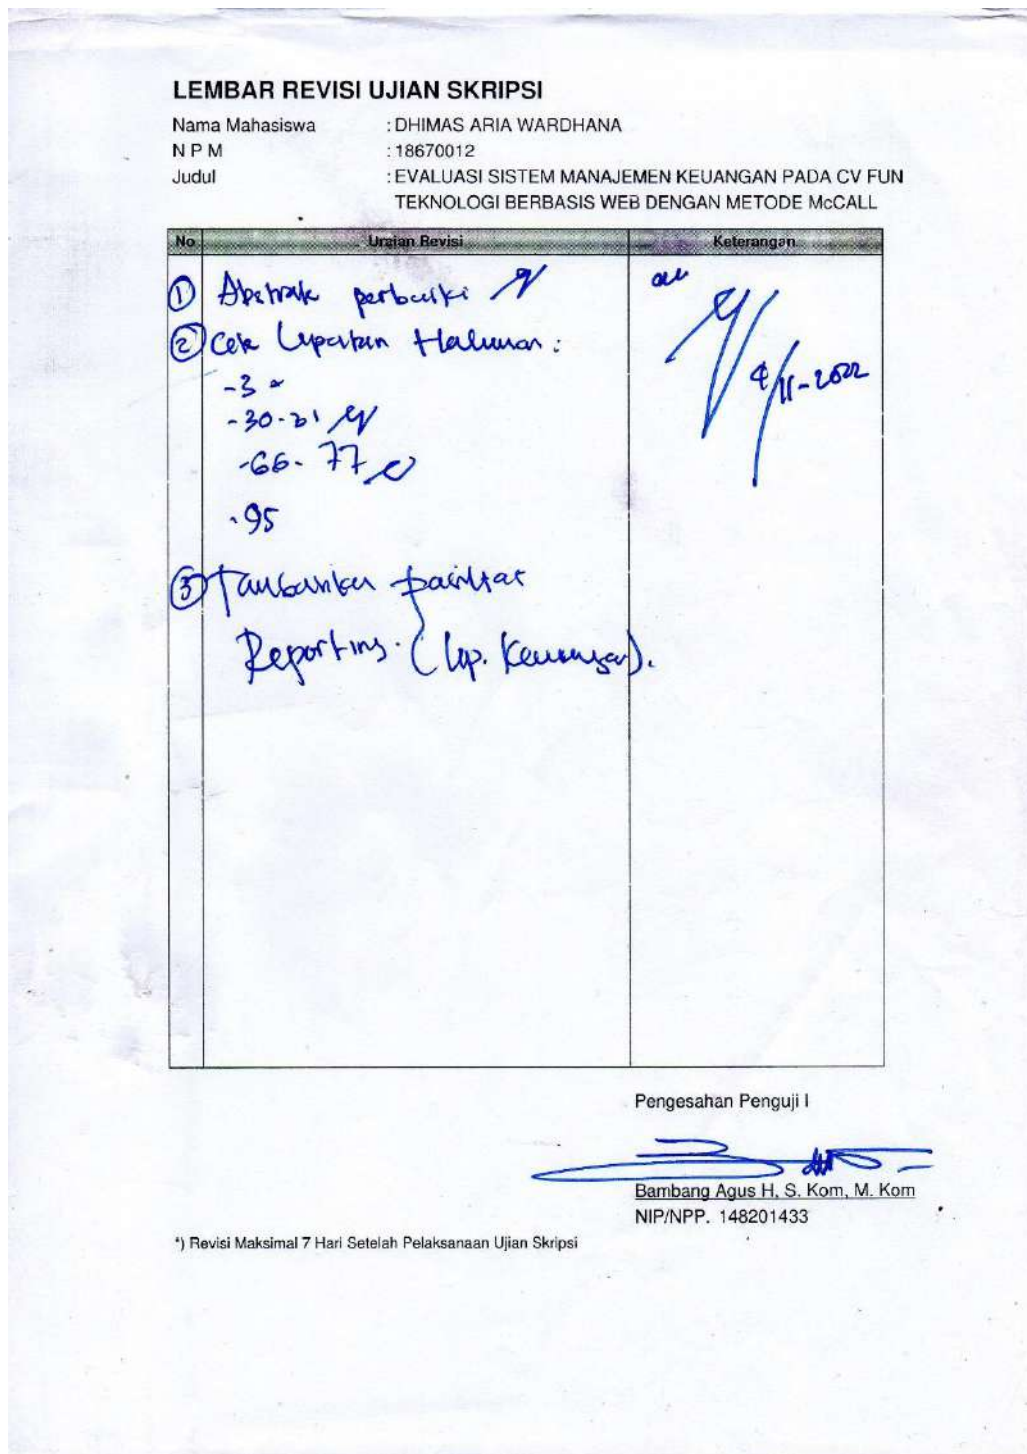 LEMBAR REVISI UJIAN SKRIPSI
Nama Mahasiswa : DHIMAS ARIA WARDHANA
N P M : 18670012
Judul : EVALUASI SISTEM MANAJEMEN KEUANGAN PADA CV FUN
TEKNOLOGI BERBASIS WEB DENGAN METODE McCALL
No Uraian Revisi Keterangan
① Abstrak perbaiki
② Cek Halaman :
-3
-30-31
-66-77
-95
③ Tambahkan
Reporting. (Lap. Keuangan).
4/11-2022
Pengesahan Penguji I
Bambang Agus H, S. Kom, M. Kom
NIP/NPP. 148201433
*) Revisi Maksimal 7 Hari Setelah Pelaksanaan Ujian Skripsi